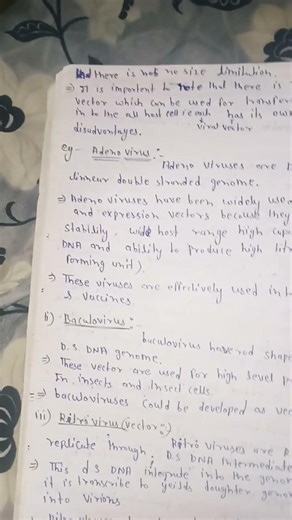 and there is not no size limitation.
=> It is important to note that there is
vector which can be used for transfer
in to the all host cell; each has its own
disadvantages. viral vector
eg - Adeno virus :-
Adeno viruses are
linnear double stranded genome.
=> Adeno viruses have been widely use
and expression vectors because they
stability, wide host range high cap
DNA and ability to produce high
forming unit).
=> These viruses are effectively used in
& vaccines
ii) Baculovirus :-
baculovirus have rod shape
D.S DNA genome.
=> These vector are used for high level
In insects and insect cells.
=> baculoviruses could be developed as vec
iii) Retrovirus (vector) :-
Retro viruses are
replicate through D.S DNA intermediate
=> This d s DNA integrate into the genom
it is transcribe to yeilds daughter genom
into virions